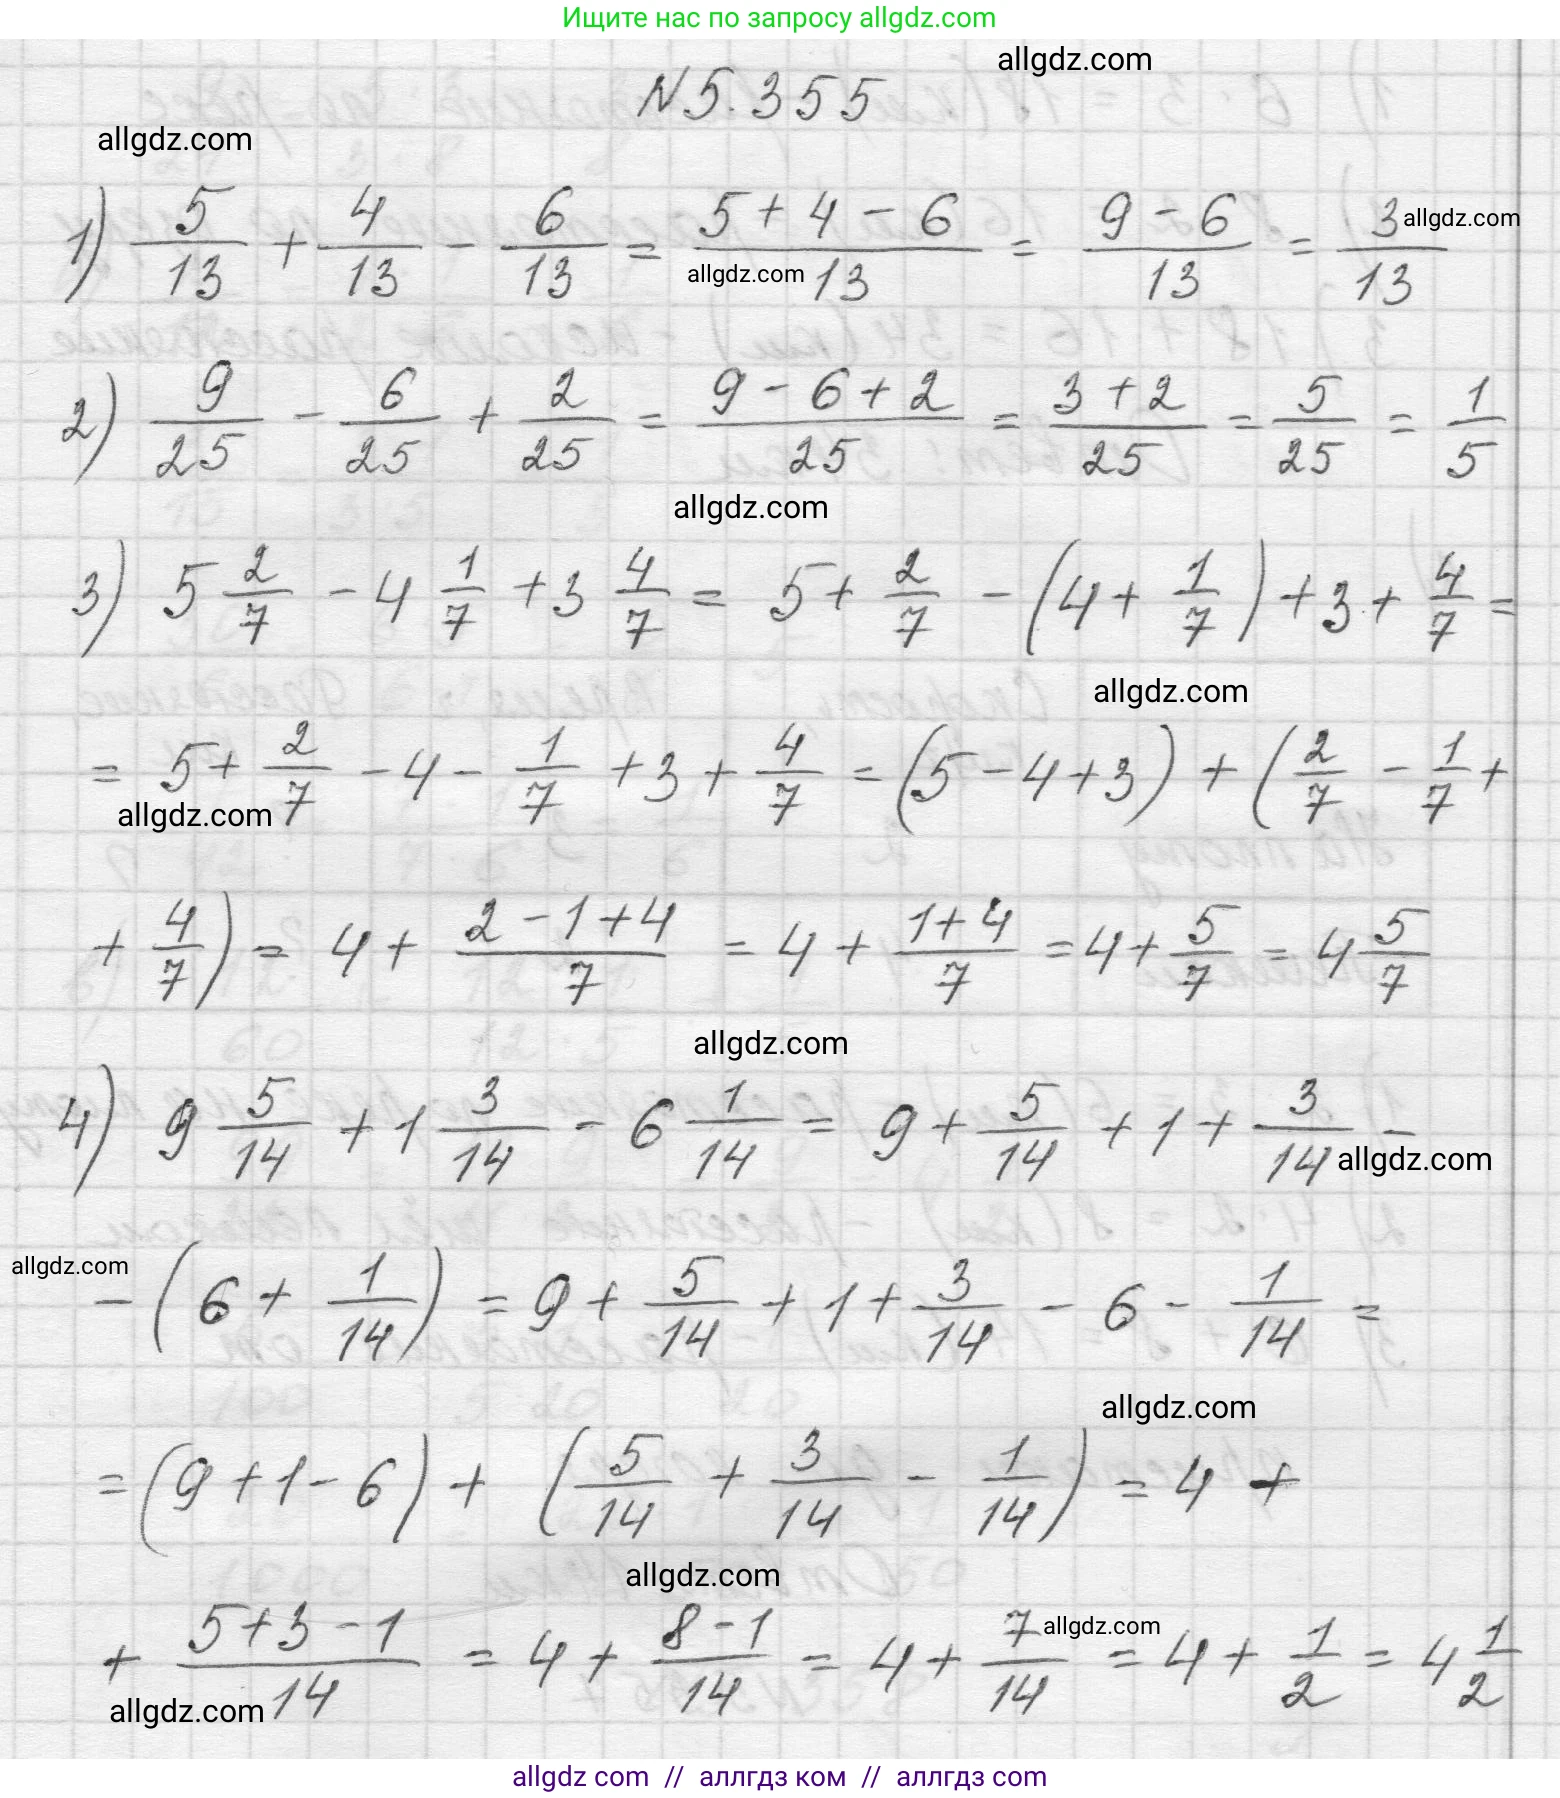 Ищите нас по запросу allgdz.com
allgdz.com
N 5.355
allgdz.com
1) 5/13 + 4/13 - 6/13 = (5+4-6)/13 = (9-6)/13 = 3/13
allgdz.com
allgdz.com
2) 9/25 - 6/25 + 2/25 = (9-6+2)/25 = (3+2)/25 = 5/25 = 1/5
allgdz.com
3) 5 2/7 - 4 1/7 + 3 4/7 = 5 + 2/7 - (4 + 1/7) + 3 + 4/7 =
allgdz.com
= 5 + 2/7 - 4 - 1/7 + 3 + 4/7 = (5-4+3) + (2/7 - 1/7 +
allgdz.com
+ 4/7) = 4 + (2-1+4)/7 = 4 + (1+4)/7 = 4 + 5/7 = 4 5/7
allgdz.com
4) 9 5/14 + 1 3/14 - 6 1/14 = 9 + 5/14 + 1 + 3/14 -
allgdz.com
allgdz.com
- (6 + 1/14) = 9 + 5/14 + 1 + 3/14 - 6 - 1/14 =
allgdz.com
= (9+1-6) + (5/14 + 3/14 - 1/14) = 4 +
allgdz.com
+ (5+3-1)/14 = 4 + (8-1)/14 = 4 + 7/14 = 4 + 1/2 = 4 1/2
allgdz.com
allgdz.com
allgdz com // аллгдз ком // аллгдз com